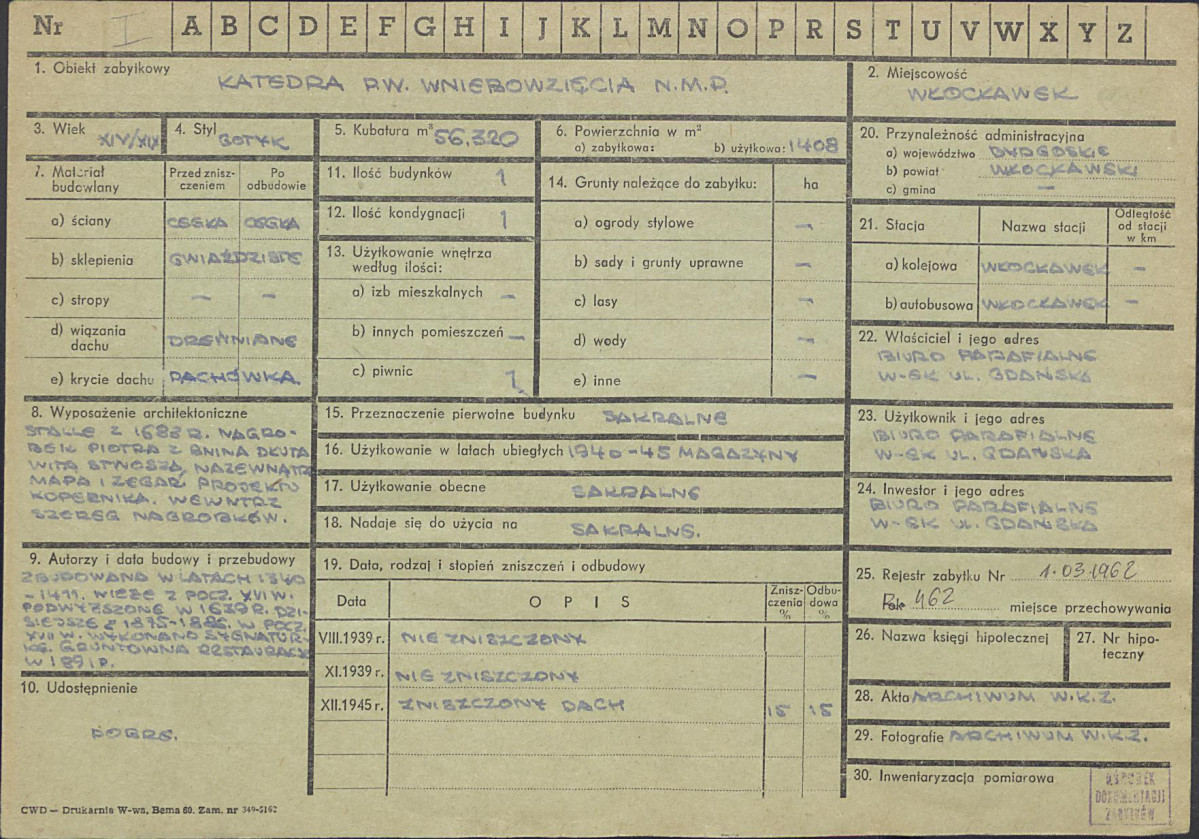 Nr I A B C D E F G H I J K L M N O P R S T U V W X Y Z
1. Obiekt zabytkowy
KATEDRA P.W. WNIEBOWZIĘCIA N.M.P.
2. Miejscowość
WŁOCŁAWEK
3. Wiek
XIV/XIX
4. Styl
GOTYK
5. Kubatura m³ 56.320
6. Powierzchnia w m²
a) zabytkowa: b) użytkowa: 1408
20. Przynależność administracyjna
a) województwo BYDGOSKIE
b) powiat WŁOCŁAWSKI
c) gmina —
7. Materiał budowlany
Przed znisz-
czeniem
Po
odbudowie
a) ściany CEGŁA CEGŁA
b) sklepienia GWIAŹDZISTE
c) stropy — —
d) wiązania
dachu DREWNIANE
e) krycie dachu DACHÓWKA.
11. Ilość budynków 1
12. Ilość kondygnacji 1
13. Użytkowanie wnętrza
według ilości:
a) izb mieszkalnych —
b) innych pomieszczeń —
c) piwnic 1
14. Grunty należące do zabytku: ha
a) ogrody stylowe —
b) sady i grunty uprawne —
c) lasy —
d) wody —
e) inne —
21. Stacja Nazwa stacji
Odległość
od stacji
w km
a) kolejowa WŁOCŁAWEK —
b) autobusowa WŁOCŁAWEK —
22. Właściciel i jego adres
BIURO PARAFIALNE
W-EK UL. GDAŃSKA
8. Wyposażenie architektoniczne
STALLE Z 1683 R. NAGRO-
BEK PIOTRA Z BNINA DŁUTA
WITA STWOSZA, NAZEWNĄTRZ
MAPA I ZEGAR PROJEKTU
KOPERNIKA. WEWNTRZ
SZEREG NAGROBKÓW.
15. Przeznaczenie pierwotne budynku SAKRALNE
16. Użytkowanie w latach ubiegłych 1940-45 MAGAZYNY
17. Użytkowanie obecne SAKRALNE
18. Nadaje się do użycia na SAKRALNE.
23. Użytkownik i jego adres
BIURO PARAFIALNE
W-EK UL. GDAŃSKA
24. Inwestor i jego adres
BIURO PARAFIALNE
W-EK UL. GDAŃSKA
9. Autorzy i data budowy i przebudowy
ZBUDOWANA W LATACH 1340
-1411. WIEŻE Z POCZ. XVI W.
PODWYŻSZONE W 1639 R. DZI-
SIEJSZE Z 1875-1885. W POCZ.
XVII W. WYKONANO SYGNATUR-
KĘ. GRUNTOWNA RESTAURACJA
W 1891 R.
19. Data, rodzaj i stopień zniszczeń i odbudowy
Data OPIS
Znisz-
czenia
%
Odbu-
dowa
%
VIII.1939 r. NIE ZNISZCZONY
XI.1939 r. NIE ZNISZCZONY
XII.1945 r. ZNISZCZONY DACH 15 15
25. Rejestr zabytku Nr 1.03.1962
Rok 462 miejsce przechowywania
26. Nazwa księgi hipotecznej
27. Nr hipo-
teczny
10. Udostępnienie
DOBRE.
28. Akta ARCHIWUM W.K.Z.
29. Fotografie ARCHIWUM W.K.Z.
30. Inwentaryzacja pomiarowa
OŚRODEK
DOKUMENTACJI
ZABYTKÓW
CWD — Drukarnia W-wa, Bema 60. Zam. nr 349-5162